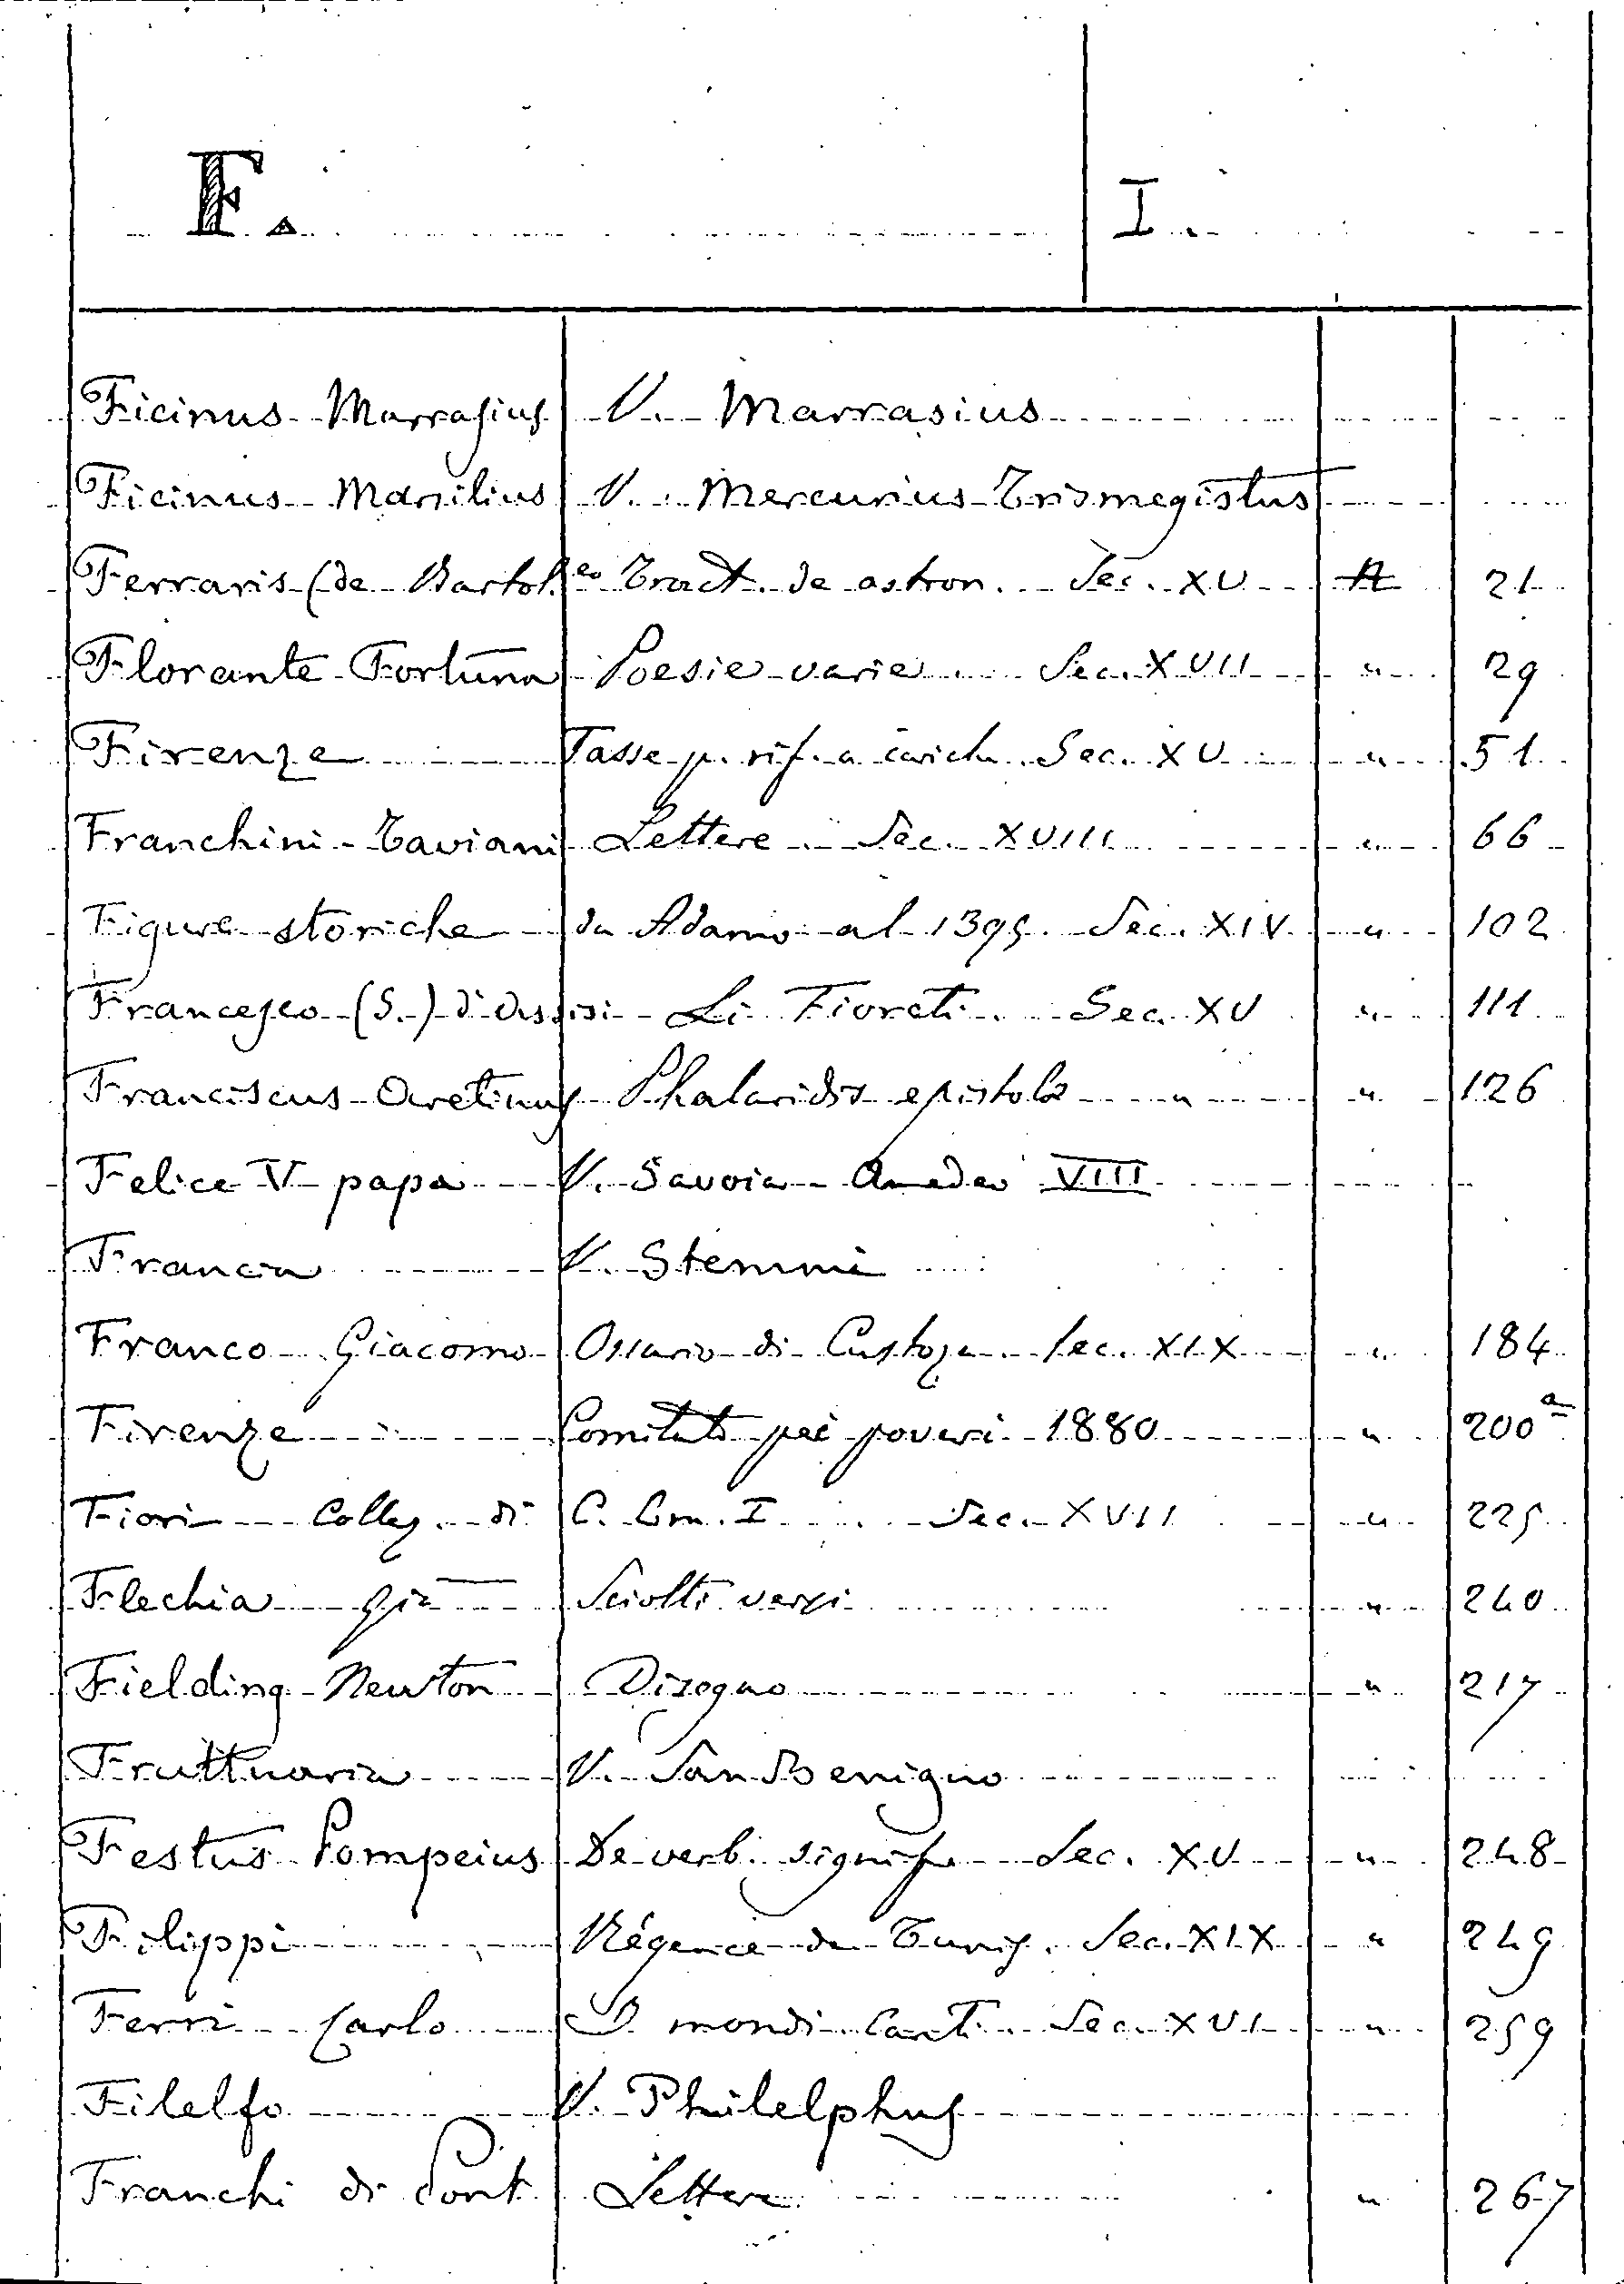 F. I.
Ficinus Marrasius V. Marrasius
Ficinus Marsilius V. Mercurius Trismegistus
Ferraris (de Bartol.eo Tract. de astron. Sec. XV A 21
Florante Fortuna Poesie varie Sec. XVII " 29
Firenze Tasse p. rif. a carich. Sec. XV " 51
Franchini-Taviani Lettere Sec. XVIII " 66
Figure storiche da Adamo al 1395. Sec. XIV " 102
Francesco (S.) d'Assisi Li Fioreti. Sec. XV " 111
Franciscus Aretinus Phalaridis epistolæ " " 126
Felice V papa V. Savoia Amedeo VIII
Francia V. Stemmi
Franco Giacomo Ossario di Custoza. Sec. XIX " 184
Firenze Comitato pei poveri 1880 " 200 a
Fiori Colleg. di C. Em. I Sec. XVII " 225
Flechia Gio Sciolti versi " 240
Fielding Newton Disegno " 217
Fruttuaria V. San Benigno
Festus Pompeius De verb. signif. Sec. XV " 248
Filippi Régence de Tunis. Sec. XIX " 249
Ferri Carlo I mondi. Cant. Sec. XVI " 259
Filelfo V. Philelphus
Franchi di Pont Lettere " 267